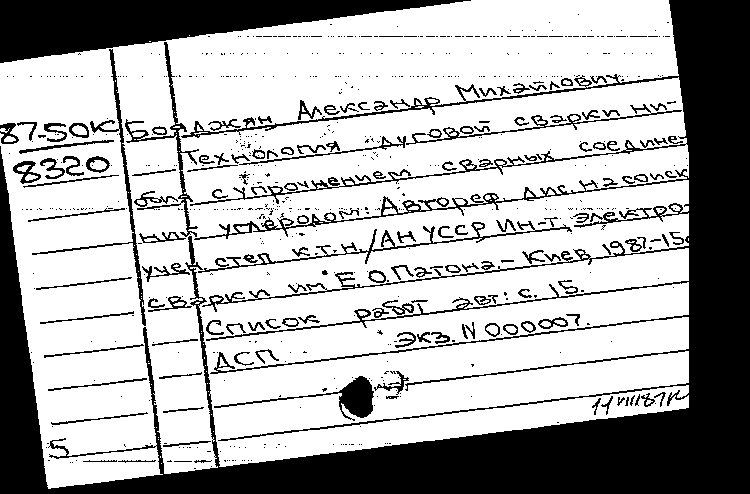 87-50К
8320
Бояджян, Александр Михайлович.
Технология дуговой сварки ни-
обия с упрочнением сварных соедине-
ний углеродом: Автореф. дис. на соиск.
учен. степ. к.т.н. / АН УССР, Ин-т электро-
сварки им. Е. О. Патона. – Киев, 1987. – 15с
Список работ авт: с. 15.
ДСП Экз. N 000007.
5